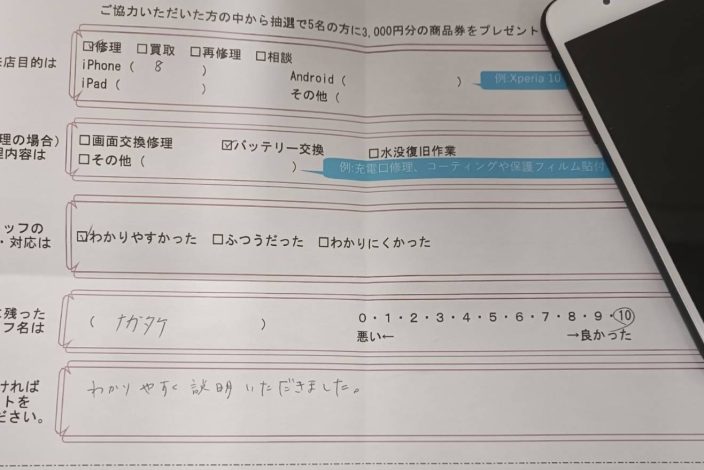 ご協力いただいた方の中から抽選で5名の方に3,000円分の商品券をプレゼント
店目的は
☑修理 □買取 □再修理 □相談
iPhone ( 8 ) Android ( ) 例:Xperia 10
iPad ( ) その他 (
理の場合)
内容は
□画面交換修理 ☑バッテリー交換 □水没復旧作業
□その他 ( ) 例:充電口修理、コーティングや保護フィルム貼付
ッフの
・対応は
☑わかりやすかった □ふつうだった □わかりにくかった
残った
フ名は
( ナガタケ ) 0・1・2・3・4・5・6・7・8・9・10
悪い← →良かった
ければ
トを
ださい。
わかりやすく説明いただきました。